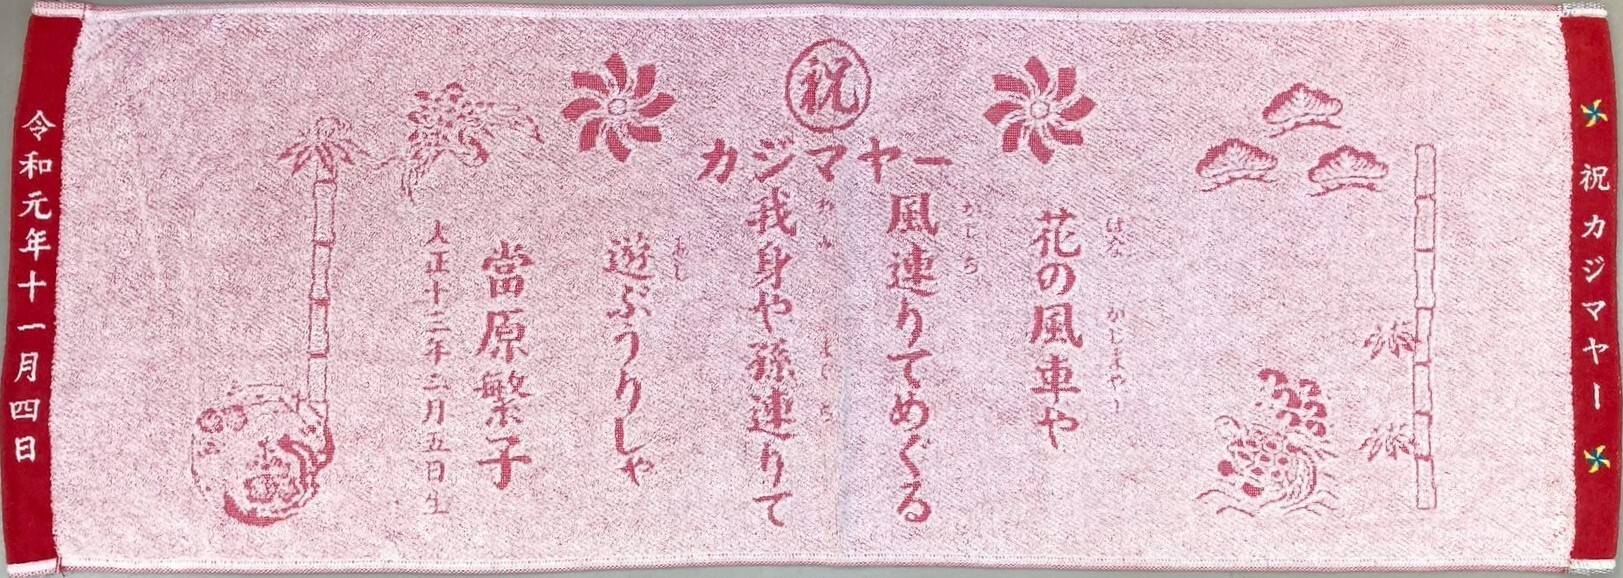 祝カジマヤー
祝
カジマヤー
花の風車や
はな かじまやー
風連りてめぐる
かじち
我身や孫連りて
わみ
遊ぶうりしゃ
あし
當原繁子
大正十二年二月五日生
令和元年十一月四日